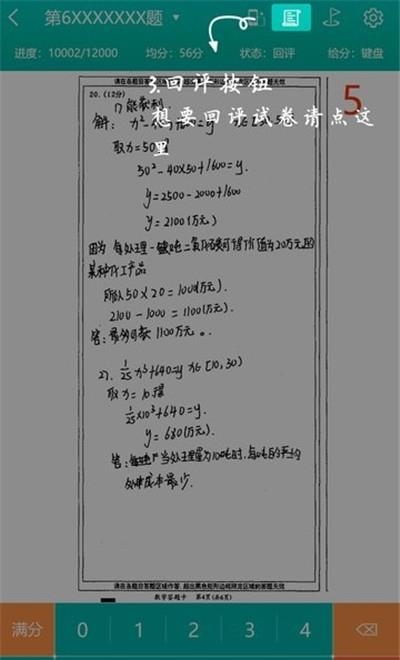 第6XXXXXXX题
进度：10002/12000 均分：56分 状态：回评 给分：键盘
请在各题目答题区域内作答，超出黑色矩形边框限定区域的答案无效
5
3.回评按钮
想要回评试卷请点这
里
20.（12分）
1) 能获利
解：
取x=50
50²-40×50+1600=y.
y=2500-2000+1600
y=2100(万元)
因为每处理一吨二氧化碳可得价值为20万元的
某种化工产品
所以50×20=1000(万元).
2100-1000=1100(万元).
答：最多可获1100万元。
2). 1/25 x³+640=y x∈[10,30)
取x=10
1/25×10³+640=y.
y=680(万元).
答：当处理量为10吨时，每吨的平均
处理成本最少.
请在各题目答题区域内作答，超出黑色矩形边框限定区域的答案无效
数学答题卡 第4页(共6页)
满分 0 1 2 3 4